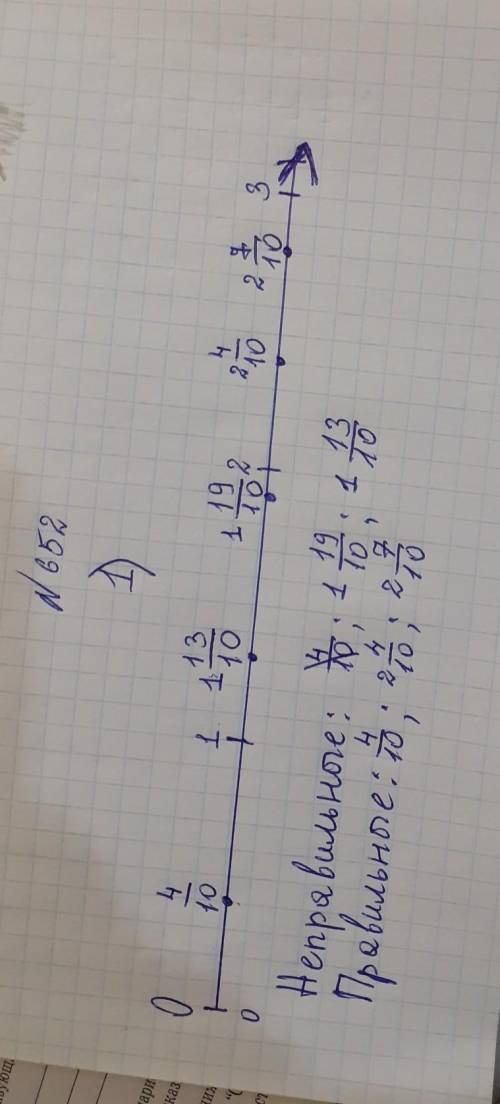 N 652
1)
0 4/10 1 1 13/10 1 19/10 2 2 4/10 2 7/10 3
0
Неправильные: 1 19/10; 1 13/10
Правильные: 4/10; 2 4/10; 2 7/10